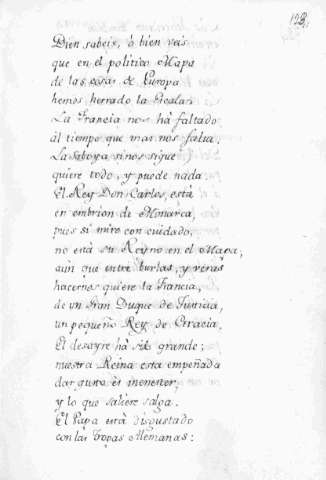 128,
Bien sabeix, ò bien veis
que en el politico Mapa
de las cosas de Europa
hemos herrado la Escala:
La Francia nos hà faltado
àl tiempo que mas nos
La Saboya si nos sigue
quiere todo, y puede nada.
El Rey Don Carlos, està
en embrion de Monarca,
pues si miro con cuidado,
no està su Reyno en el Mapa,
aùn que entre burlas, y veras
hacernos quiere la Francia,
de un Gran Duque de Justicia,
un pequeño Rey de Gracia.
El desayre hà sido grande;
nuestra Reina esta empeñada
dar gusto ès menester,
y lo que saliere salga.
El Papa està disgustado
con las Tropas Alemanas: